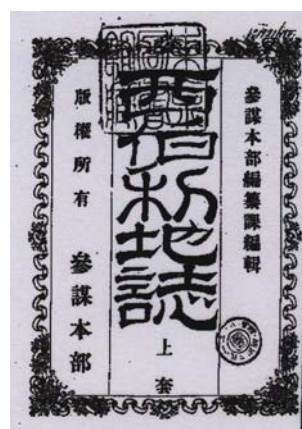 參謀本部編纂課編輯
西伯利地誌
上套
版權所有 參謀本部